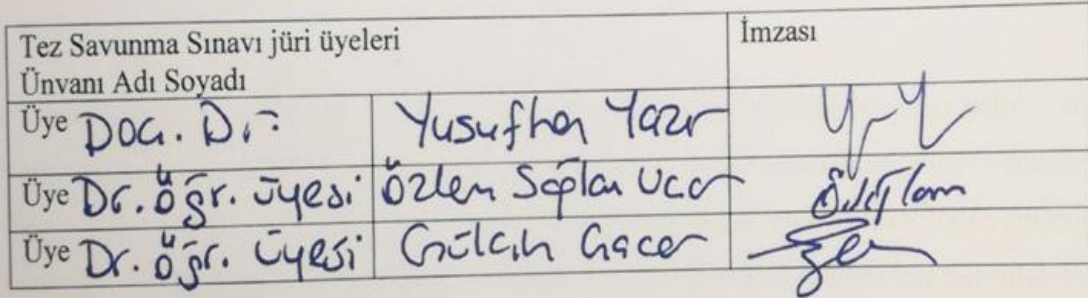 Tez Savunma Sınavı jüri üyeleri
Ünvanı Adı Soyadı
İmzası
Üye Doç. Dr. Yusufhan Yazır
Üye Dr. Öğr. Üyesi Özlen Saplan Ucar
Üye Dr. Öğr. Üyesi Gülcin Gacer